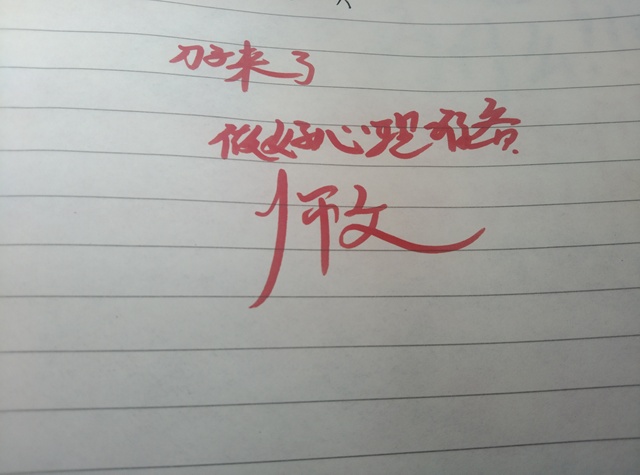 刀子来了
做好心理准备.
师文